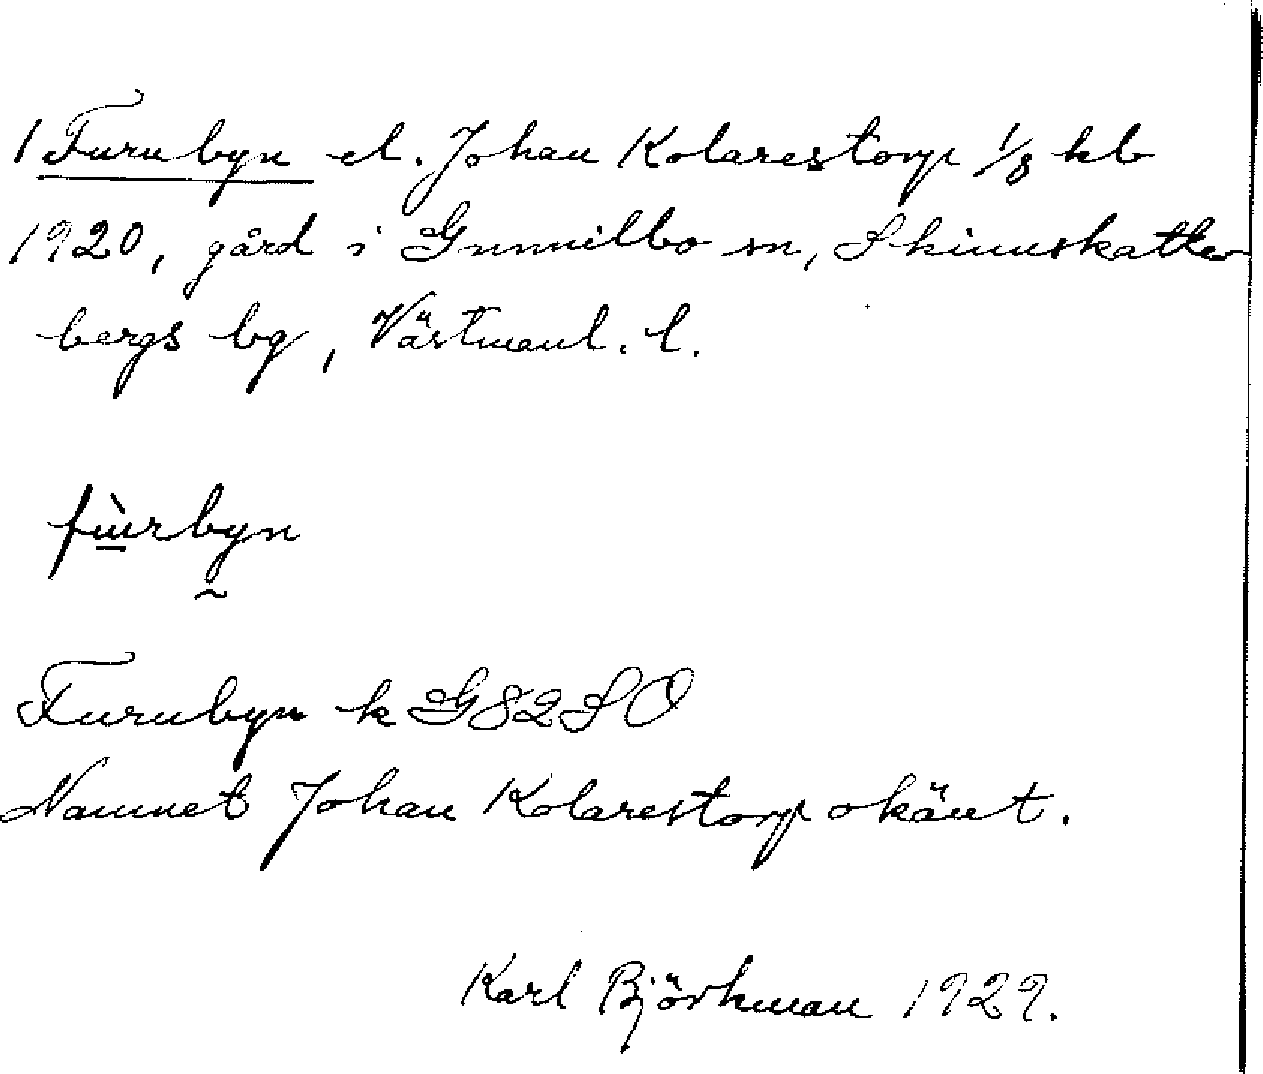 1 Furubyn el. Johan Kolarestorp 1/8 kb
1920, gård i Gunnilbo sn, Skinnskatte-
bergs bg, Västmanl. l.
fùrbyn
Furubyn k G82SO
Namnet Johan Kolarestorp okänt.
Karl Björkman 1929.